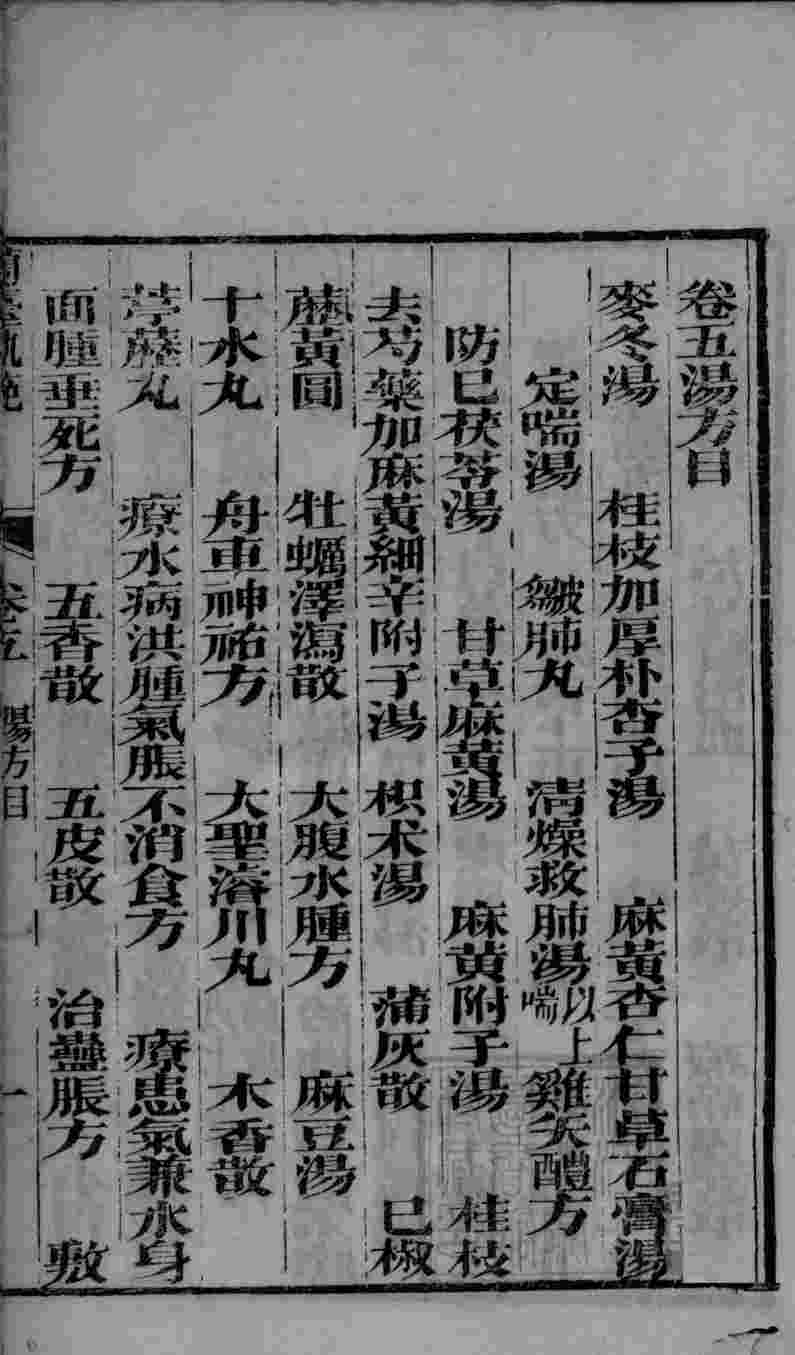 卷五湯方目
麥冬湯 桂枝加厚朴杏子湯 麻黃杏仁甘草石膏湯
定喘湯 皺肺丸 清燥救肺湯以上喘 雞矢醴方
防已茯苓湯 甘草麻黃湯 麻黃附子湯 桂枝
去芍藥加麻黃細辛附子湯 枳朮湯 蒲灰散 已椒
藶黃圓 牡蠣澤瀉散 大腹水腫方 麻豆湯
十水丸 舟車神祐方 大聖濬川丸 木香散
葶藶丸 療水病洪腫氣脹不消食方 療患氣兼水身
面腫垂死方 五香散 五皮散 治蠱脹方 敷
蘭臺軌範 卷之五 湯方目 一